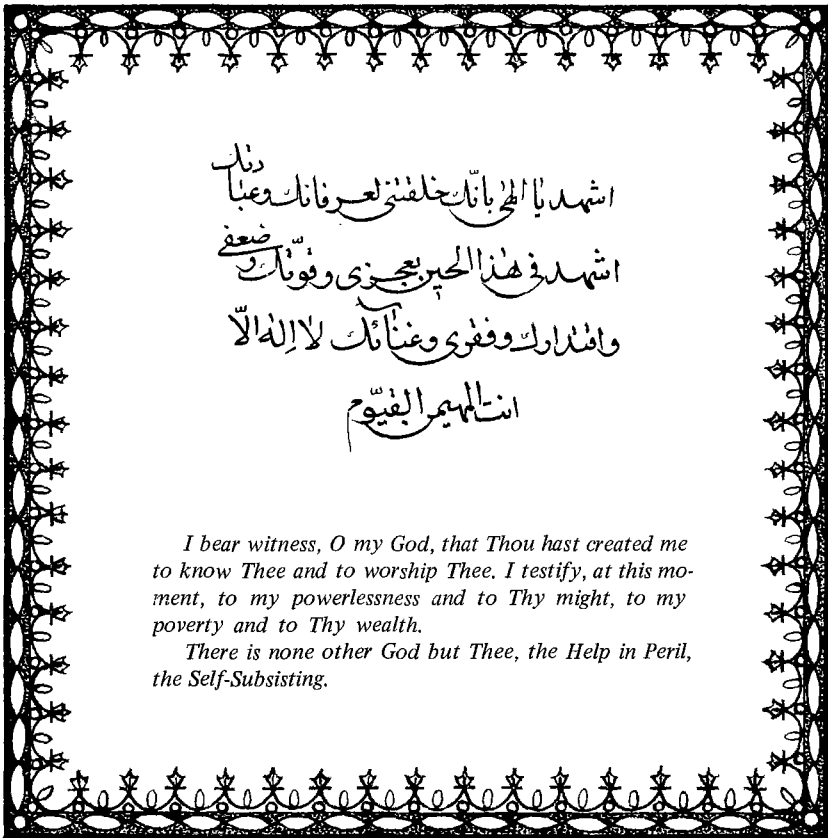 اشهد يا الهى بانّك خلقتنى لعرفانك وعبادتك
اشهد فى هذا الحين بعجزى وقوّتك وضعفى
واقتدارك وفقرى وغنائك لا اله الّا
انت المهيمن القيّوم
I bear witness, O my God, that Thou hast created me
to know Thee and to worship Thee. I testify, at this mo-
ment, to my powerlessness and to Thy might, to my
poverty and to Thy wealth.
There is none other God but Thee, the Help in Peril,
the Self-Subsisting.